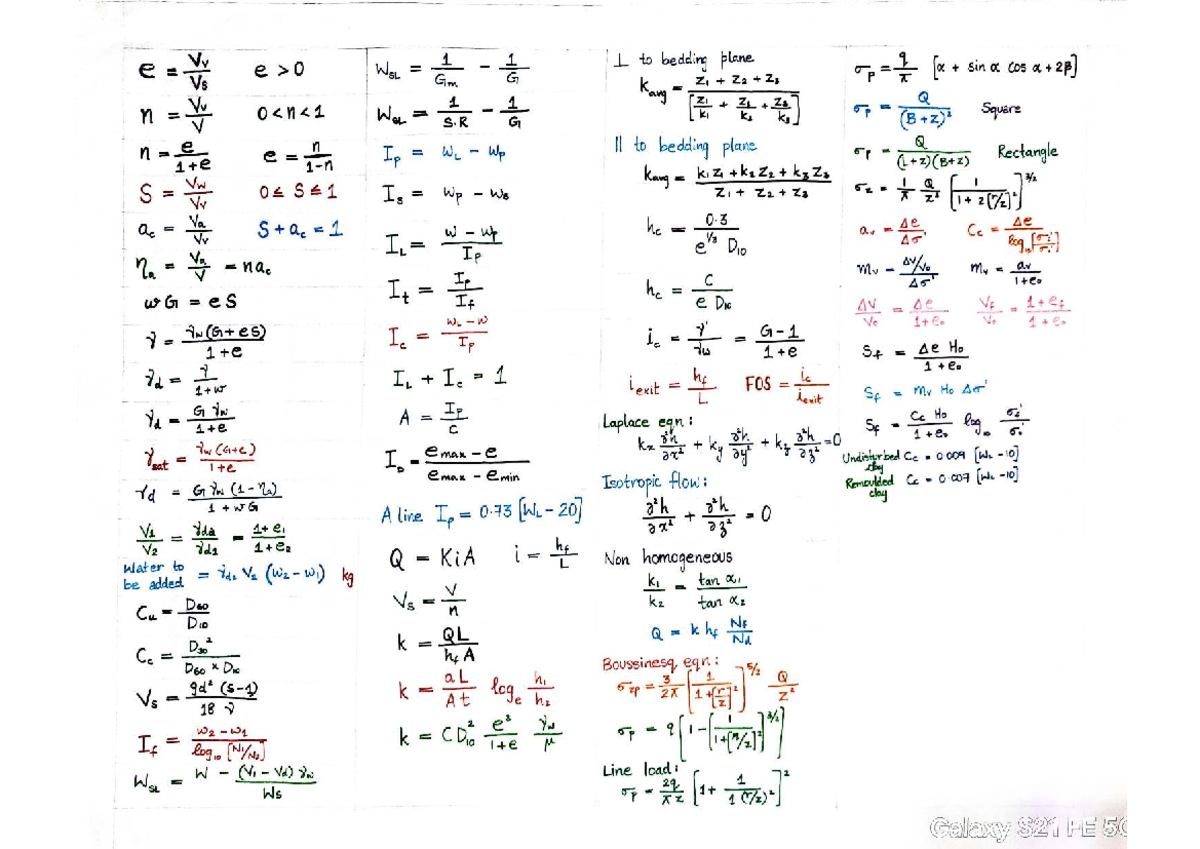 e = Vv/Vs e > 0
n = Vv/V 0 < n < 1
n = e/1+e e = n/1-n
S = Vw/Vv 0 ≤ S ≤ 1
ac = Va/Vv S + ac = 1
ηa = Va/V = nac
wG = eS
γ = γw(G+eS)/1+e
γd = γ/1+w
γd = Gγw/1+e
γsat = γw(G+e)/1+e
γd = Gγw(1-ηa)/1+wG
V1/V2 = γd2/γd1 = 1+e1/1+e2
Water to
be added = γd2 V2 (w2-w1) kg
Cu = D60/D10
Cc = D30²/D60 × D10
Vs = gd² (s-1)/18 ν
If = w2-w1/log10 [N1/N2]
WSL = W - (V1-Vd)γw/Ws
WSL = 1/Gm - 1/G
WSL = 1/S.R - 1/G
Ip = WL - Wp
Is = Wp - Ws
IL = W - Wp/Ip
It = Ip/If
Ic = WL - W/Ip
IL + Ic = 1
A = Ip/C
ID = emax - e/emax - emin
A line Ip = 0.73 [WL - 20]
Q = KiA i = hf/L
Vs = V/n
k = QL/hf A
k = aL/At loge h1/h2
k = CD10² e³/1+e γw/μ
⊥ to bedding plane
kavg = Z1 + Z2 + Z3/[Z1/k1 + Z2/k2 + Z3/k3]
|| to bedding plane
kavg = k1Z1 + k2Z2 + k3Z3/Z1 + Z2 + Z3
hc = 0.3/e^1/3 D10
hc = C/e D10
ic = γ'/γw = G-1/1+e
iexit = hf/L FOS = ic/iexit
Laplace eqn:
kx ∂²h/∂x² + ky ∂²h/∂y² + kz ∂²h/∂z² = 0
Isotropic flow:
∂²h/∂x² + ∂²h/∂z² = 0
Non homogeneous
k1/k2 = tan α1/tan α2
Q = k hf Nf/Nd
Boussinesq eqn:
σzp = 3/2π [1/1+[r/z]²]^5/2 Q/z²
σp = q [1-[1/1+[R/z]²]^3/2]
Line load:
σp = 2q/πz [1+ 1/1(r/z)²]²
σp = q/π [α + sin α cos α+2β]
σp = Q/(B+Z)² Square
σp = Q/(L+Z)(B+Z) Rectangle
σz = 1/π Q/z² [1/1+2[r/z]²]^3/2
av = Δe/Δσ' Cc = Δe/log10[σ'/σ']
mv = ΔV/V0/Δσ' mv = av/1+e0
ΔV/V0 = Δe/1+e0 Vf/V0 = 1+ef/1+e0
Sf = Δe H0/1+e0
Sf = mv H0 Δσ'
Sf = Cc H0/1+e0 log10 σ'/σ'
Undisturbed Cc = 0.009 [WL-10]
clay
Remoulded Cc = 0.007 [WL-10]
clay
Galaxy S21 FE 5G